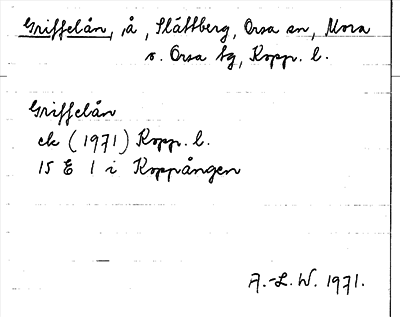 Griffelån, å, Slättberg, Orsa sn, Mora
s. Orsa tg, Kopp. l.
Griffelån
ek (1971) Kopp. l.
15 E 1 i Koppången
A.-L. W. 1971.